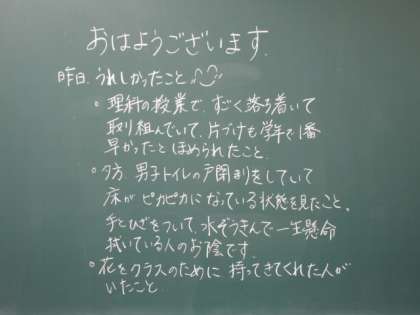 おはようございます.
昨日、うれしかったこと
○理科の授業で、すごく落ち着いて
取り組んでいて、片づけも学年で1番
早かったとほめられたこと.
○夕方、男子トイレの戸閉まりをしていて
床がピカピカになっている状態を見たこと。
手とひざをついて、水ぞうきんで一生懸命
拭いている人のお陰です.
○花をクラスのために持ってきてくれた人が
いたこと